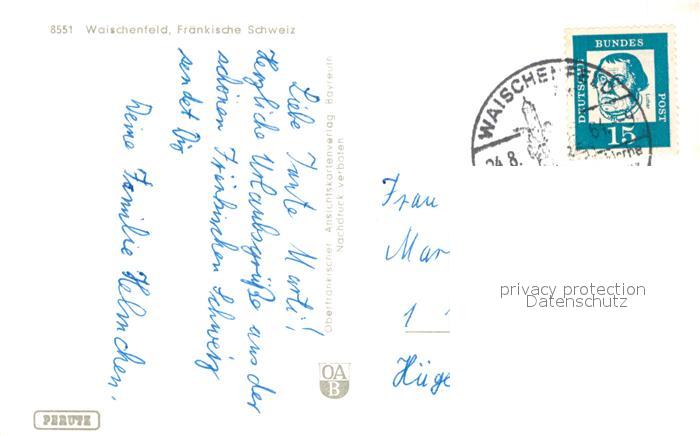 8551 Waischenfeld, Fränkische Schweiz
Liebe Tante Marti!
Herzliche Urlaubsgrüße aus der
schönen Fränkischen Schweiz
sendet Dir
Deine Familie Helmchen.
Oberfränkischer Ansichtskartenverlag Bayreuth
Nachdruck verboten
OA
B
PERUTZ
WAISCHENFELD
24.8.
DEUTSCHE
BUNDES
POST
Luther
15
Frau
Mar
1
Hüge
privacy protection
Datenschutz